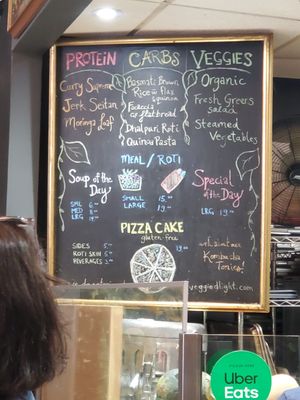 PROTEIN
Curry Supreme
Jerk Seitan
Moringa Loaf
CARBS
Basmati Brown
Rice w Flax
Quinoa
Focaccia
or flatbread
Dhalpuri Roti
Quinoa Pasta
VEGGIES
Organic
Fresh Greens
Salad
Steamed
Vegetables
Soup of the
Day
SML 6
MED 8
LRG
MEAL / ROTI
SMALL 15
LARGE 19
Special
of the Day
LRG 19
PIZZA CAKE
gluten-free
19
SIDES 5
ROTI SKIN 5
BEVERAGES
Kombucha
Tonics
veggiedlight.com
Uber
Eats